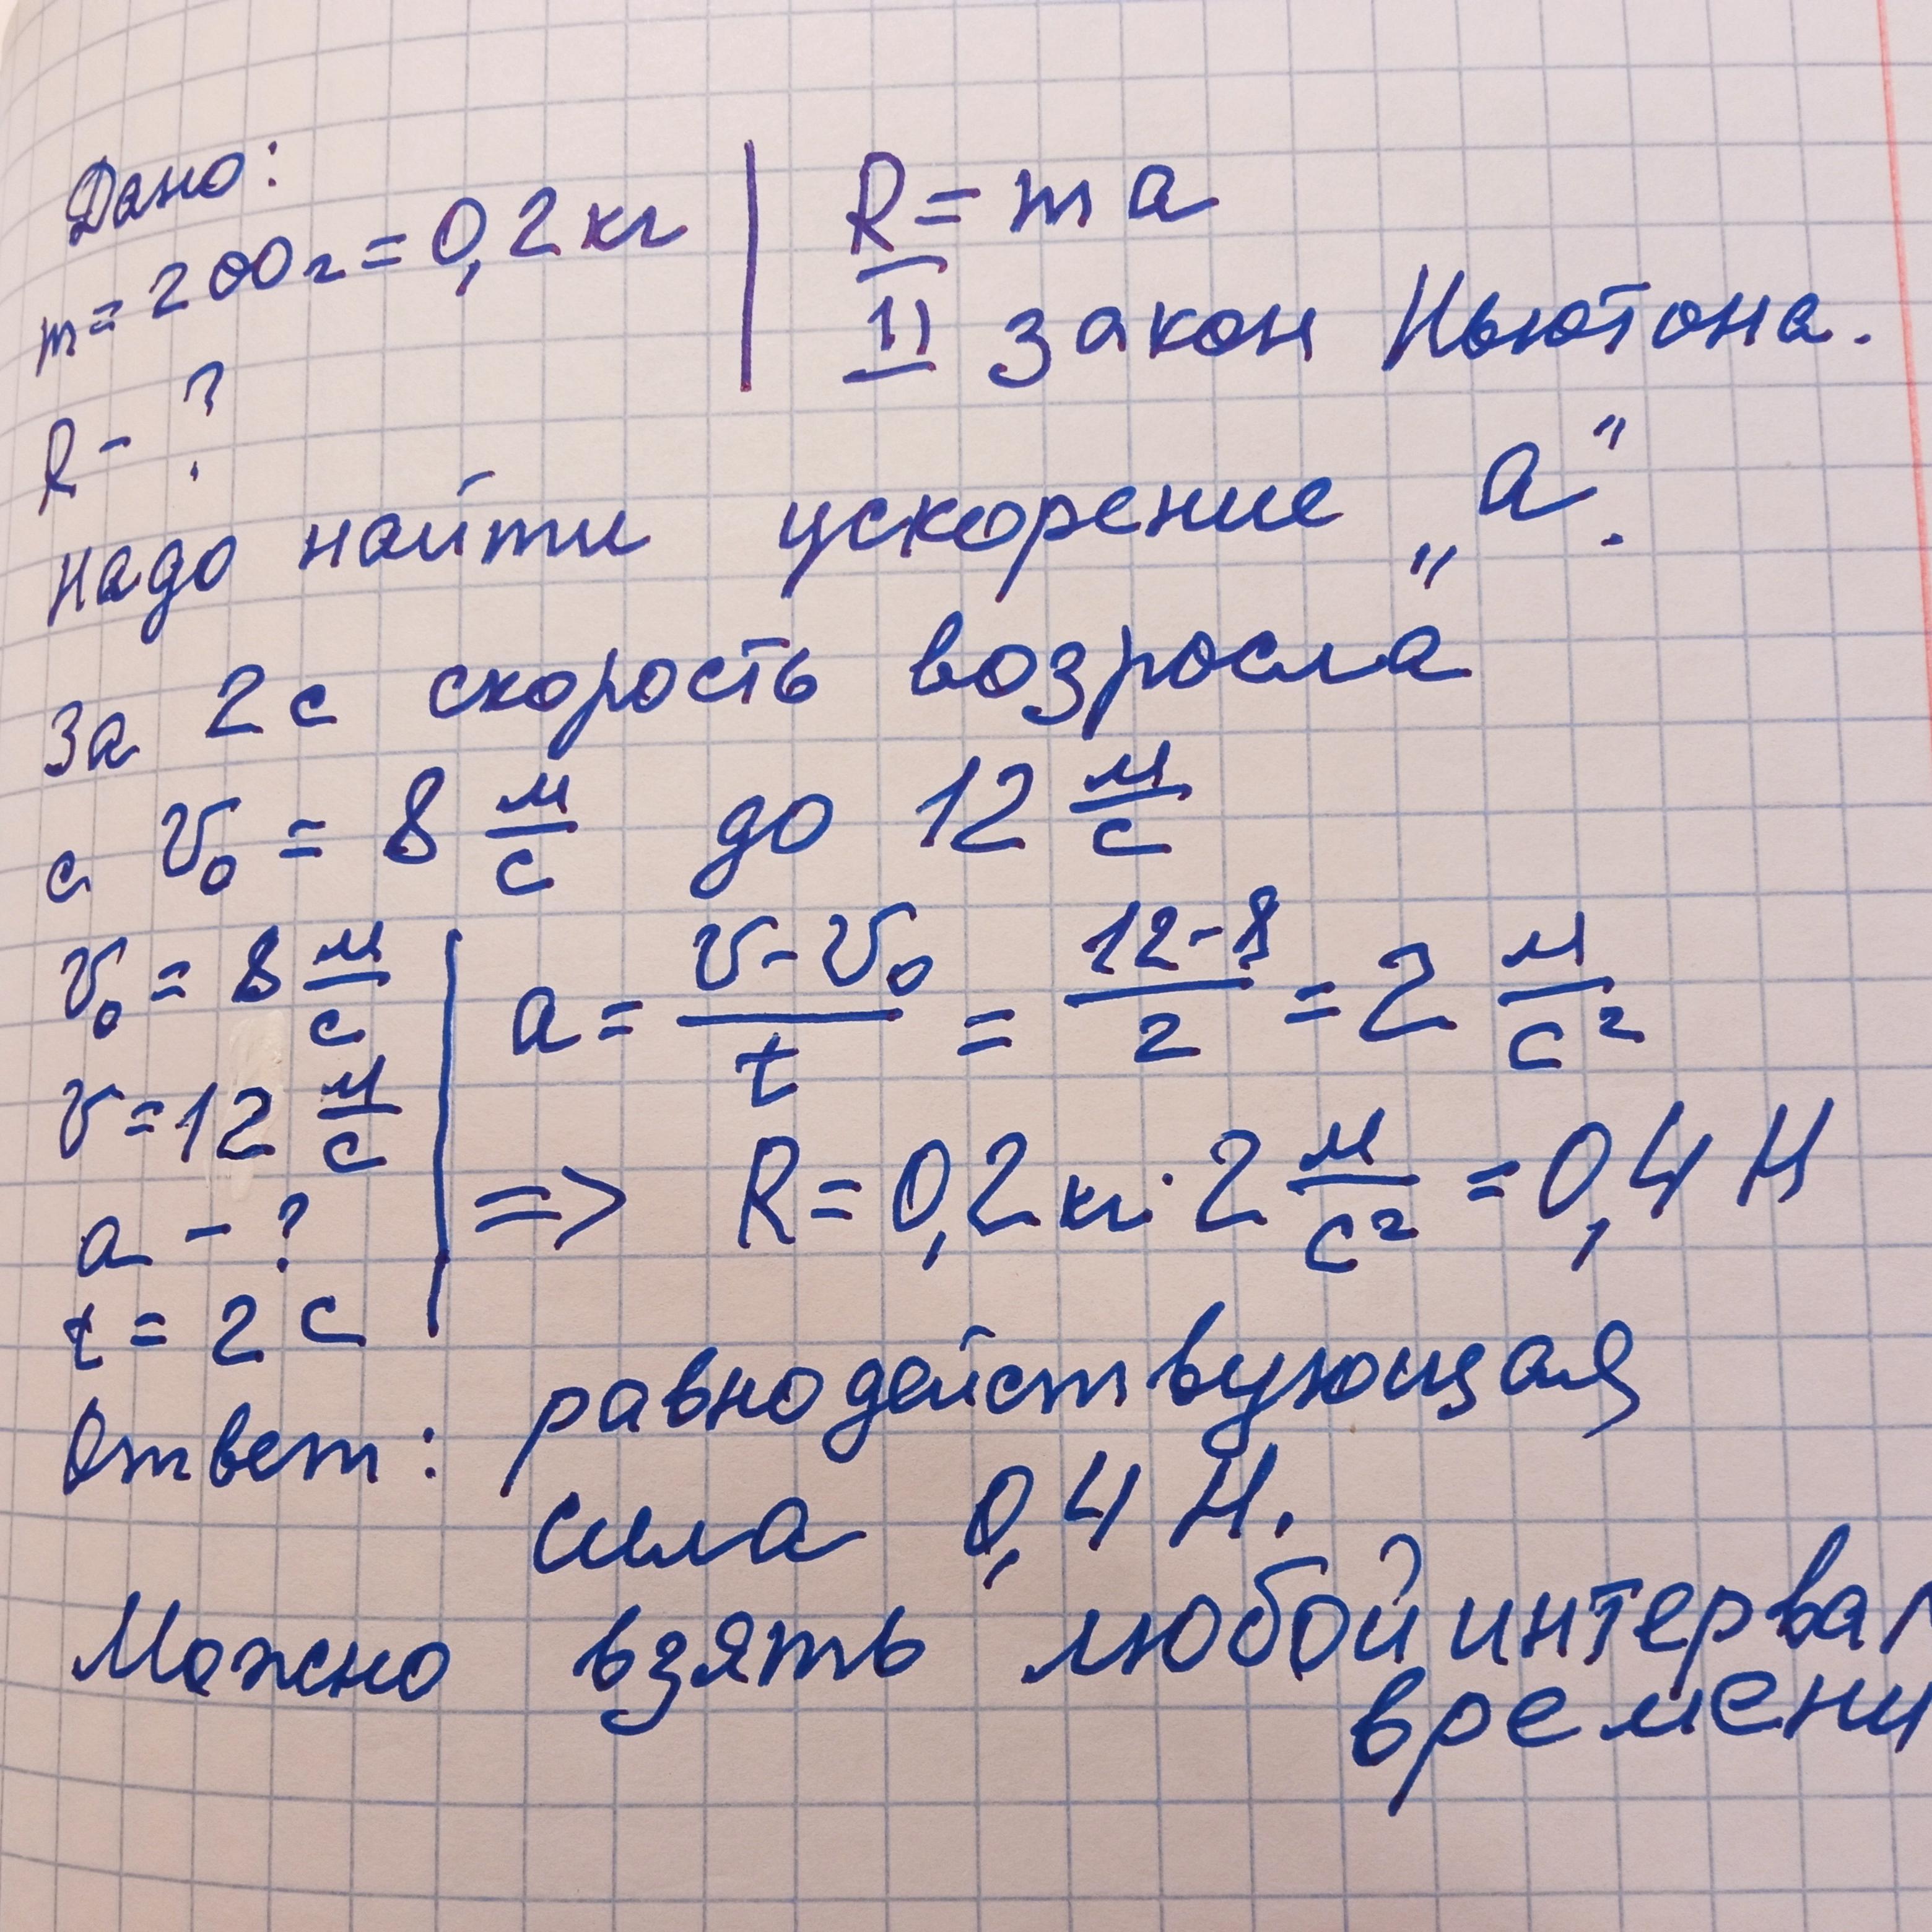 Дано:
m = 200 г = 0,2 кг | R = m a
II закон Ньютона.
R - ?
Надо найти ускорение „a“.
За 2 с скорость возросла
с v₀ = 8 м/с до 12 м/с
v₀ = 8 м/с | a = (v - v₀)/t = (12 - 8)/2 = 2 м/с²
v = 12 м/с
a - ? => R = 0,2 кг · 2 м/с² = 0,4 Н
t = 2 с
Ответ: равнодействующая
сила 0,4 Н.
Можно взять любой интервал
времени